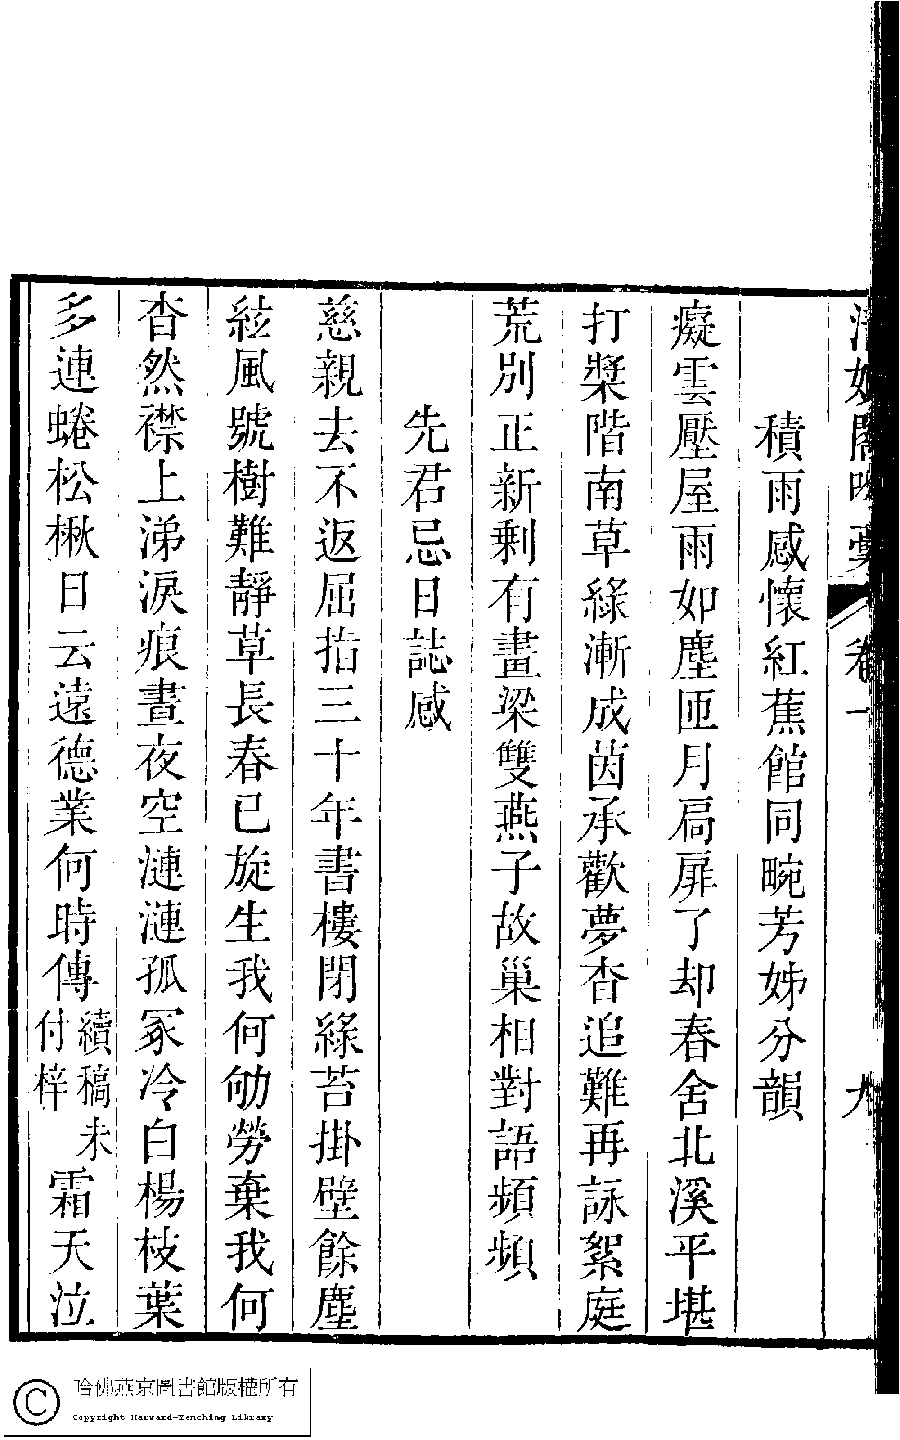 清娛閣吟稾 卷一 九
積雨感懷紅蕉館同畹芳姊分韻
癡雲壓屋雨如塵匝月扃扉了却春舍北溪平堪
打槳階南草綠漸成茵承歡夢杳追難再詠絮庭
荒別正新剩有畫梁雙燕子故巢相對語頻頻
先君忌日誌感
慈親去不返屈指三十年書樓閉綠苔掛壁餘塵
絃風號樹難靜草長春已旋生我何劬勞棄我何
杳然襟上涕淚痕晝夜空漣漣孤冢冷白楊枝葉
多連蜷松楸日云遠德業何時傳續稿未付梓霜天泣
哈佛燕京圖書館版權所有
Copyright Harvard-Yenching Library